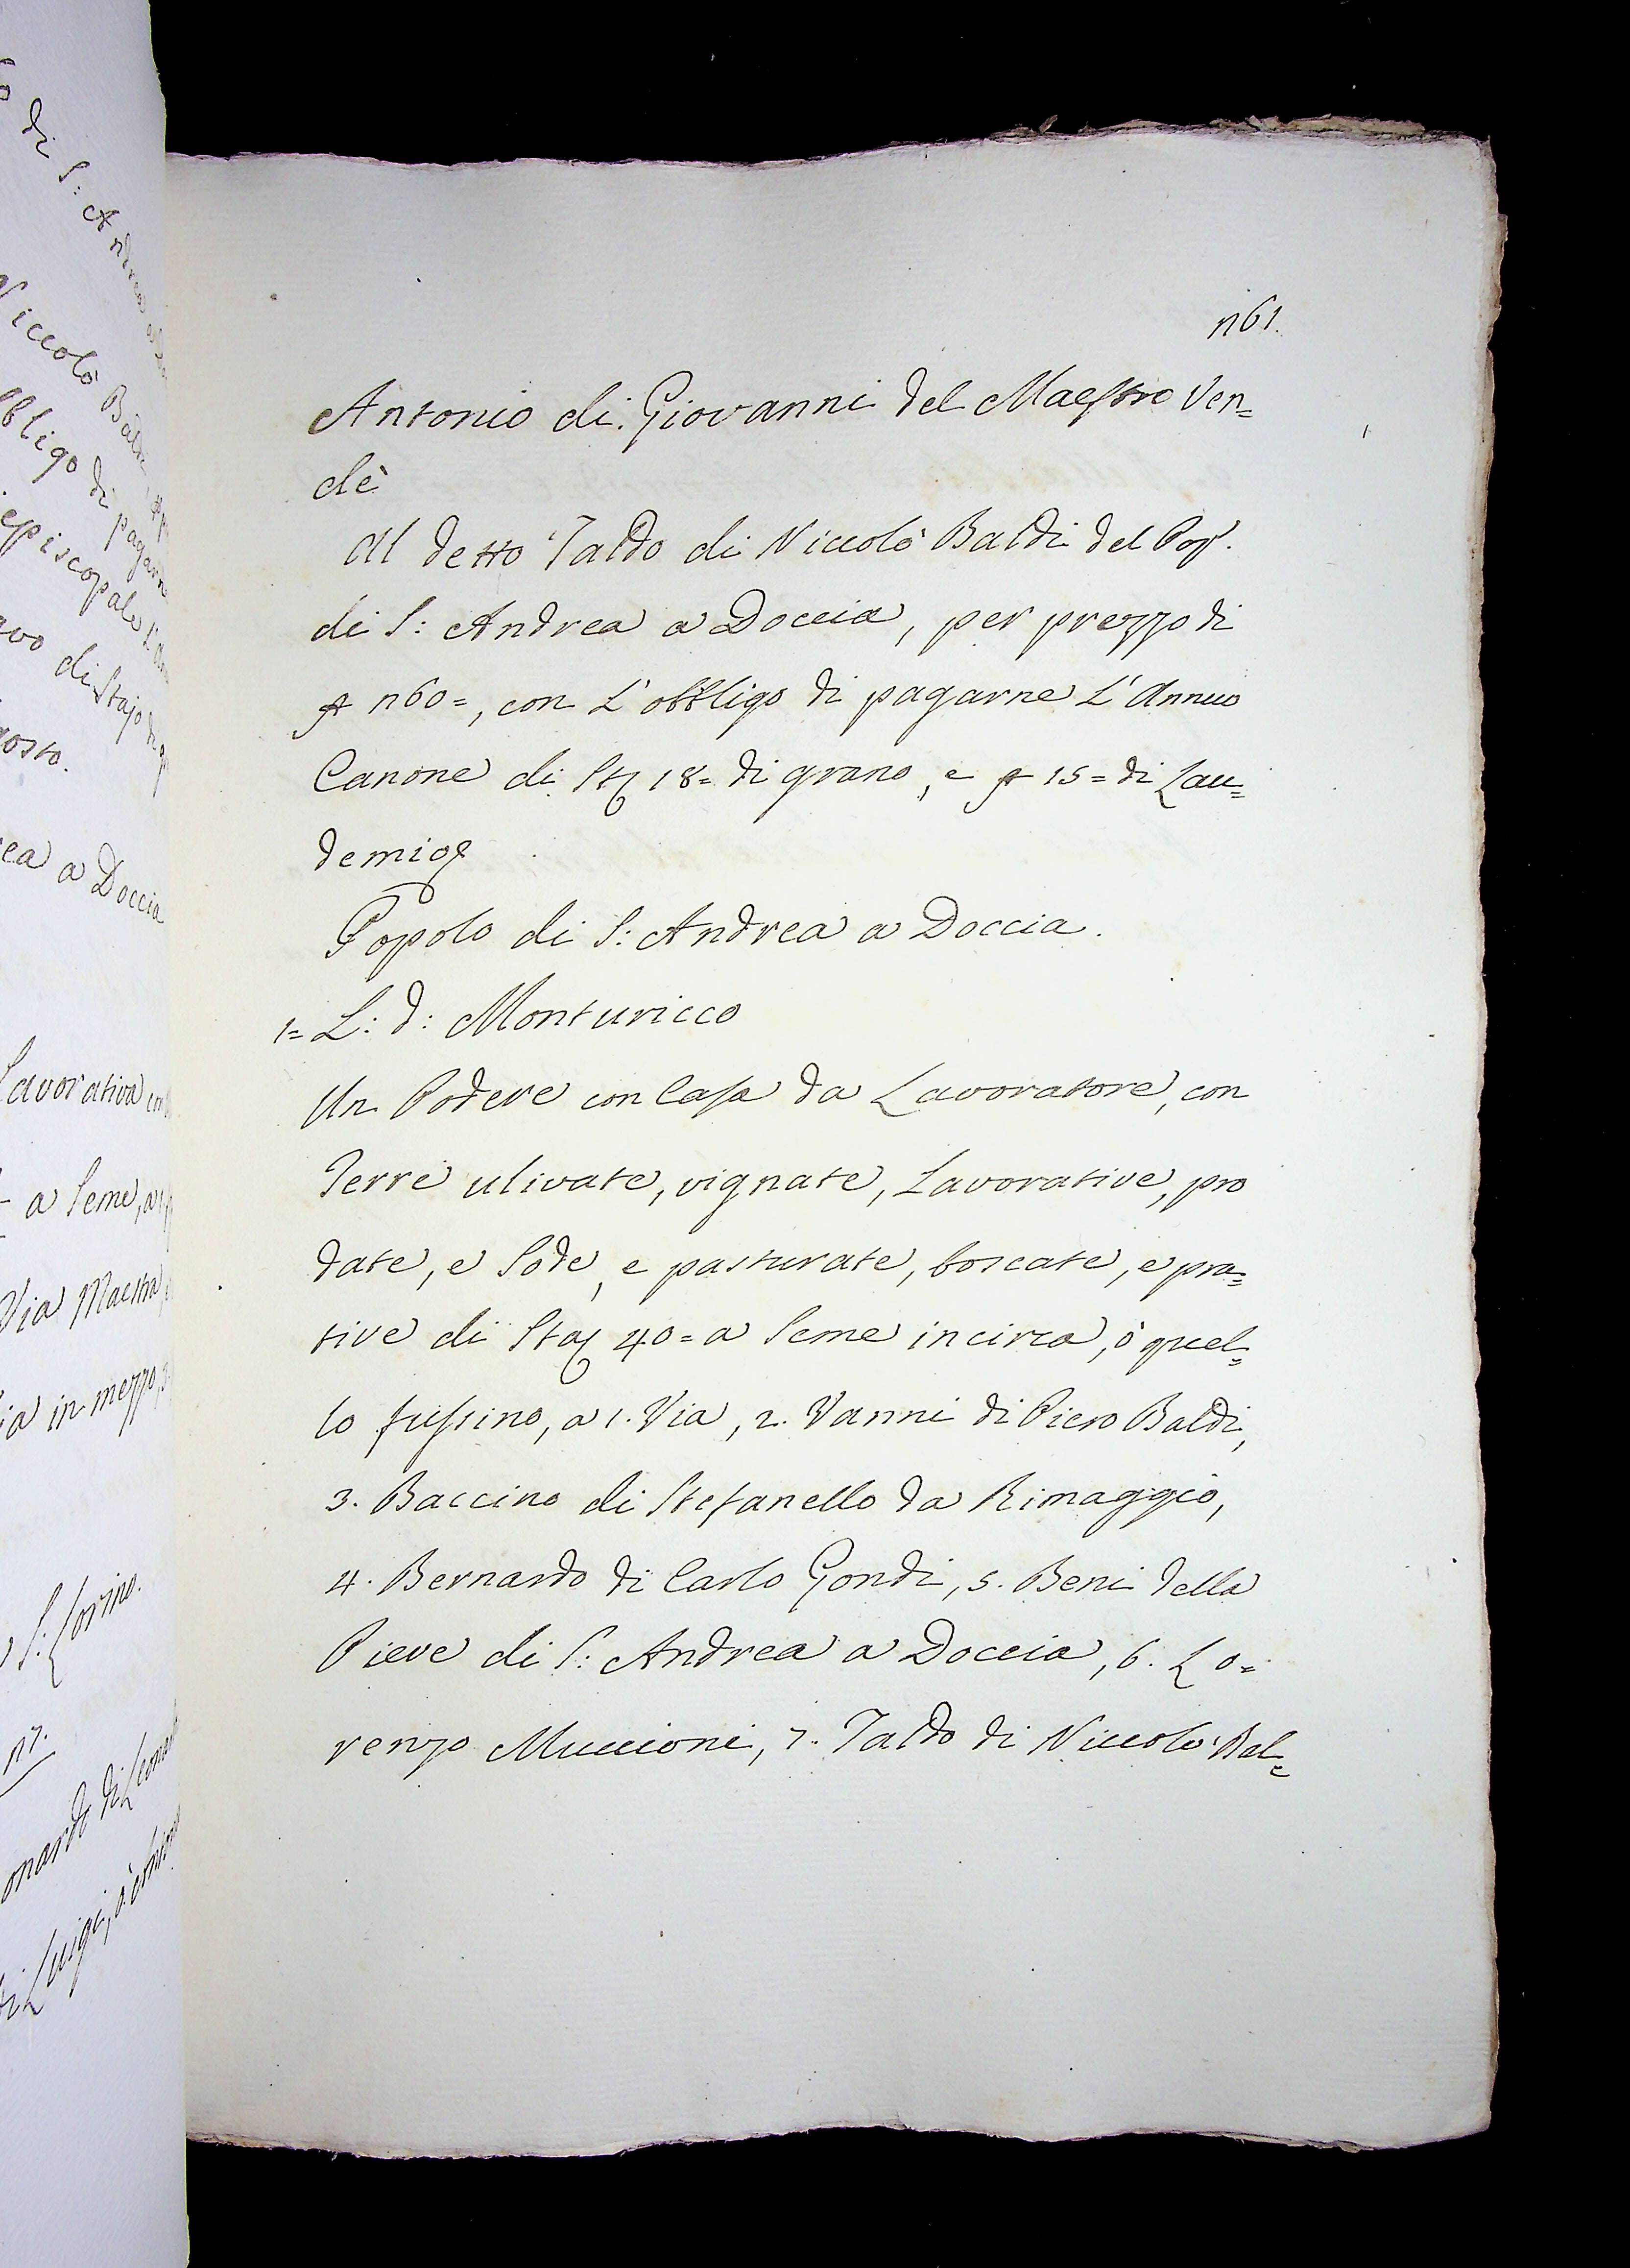 n61.
Antonio di Giovanni del Maestro Ven=
dè
Al detto Taldo di Niccolò Baldi del Pop.
di S: Andrea a Doccia, per prezzo di
n60=, con L'obbligo di pagarne L'Annuo
Canone di Sta 18= di grano, e 15= di Lau=
demio
Popolo di S: Andrea a Doccia.
1= L: d: Monturicco
Un Podere con Casa da Lavoratore, con
Terre ulivate, vignate, Lavorative, pro
date, e Sode, e pasturate, boscate, e pra=
tive di Sta 40= a Seme incirca, ò quel=
lo fussino, a 1. Via, 2. Vanni di Piero Baldi,
3. Baccino di Stefanello da Rimaggio,
4. Bernardo di Carlo Gondi, 5. Beni della
Pieve di S: Andrea a Doccia, 6. Lo=
renzo Muccioni, 7. Taldo di Niccolò Bal=
di S: Andrea
Niccolò Baldi
obbligo di pagarne
episcopale
di Stajo
ea a Doccia
Lavorativa
a Seme, a
Via Maestra
ia in mezzo,
n7.
onardo di
di Luigi,